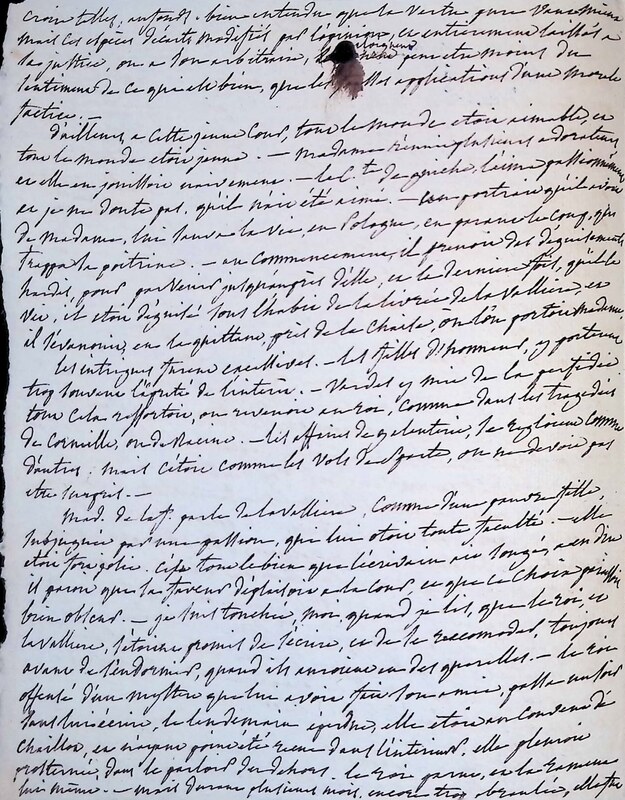 croit telles, au fond; bien entendu que la vertu pure vaut mieux
mais ces espèces d'écarts modifiés par l'opinion, et entièrement laissés à
la justice, ou à son arbitraire, peut être moins du
sentiment de ce qui est bien, que les applications d'une morale
factice. —
D'ailleurs, à cette jeune Cour, tout le monde etoit aimable, et
tout le monde etoit jeune. — Madame réunit plusieurs adorateurs,
et elle en jouissoit — le Cte de Guiche, l'aima passionnément,
et je ne doute pas, qu'il n'ait été aimé. — un portrait qu'il avoit
de Madame, lui sauva la vie, en Pologne, en parant le coup, qui
frappa sa poitrine. — au commencement, il prenoit des déguisements
hardis, pour parvenir jusqu'auprès d'elle, et la dernière fois, qu'il la
vit, il etoit déguisé sous l'habit de la livrée de la Vallière, et
il s'évanouit, en la quittant, près de la chaise, où l'on portoit Madame.
Les intrigues furent excessives. — les filles d'honneur, y portèrent
trop souvent l'âpreté de l'intérêt. — Vardes y mit de la perfidie
tout cela ressortoit, ou revenoit au roi, comme dans les tragédies
de Corneille, ou de Racine. — les affaires de galanterie, se comme
d'autres. mais c'étoit comme les vols de Sparte, on ne devoit pas
etre surpris. —
Mad. de la f. parle de la Vallière, comme d'une pauvre fille,
subjuguée par une passion, qui lui otoit toute faculté. — elle
etoit fort jolie. C'est tout le bien que l'écrivain ait songé, à en dire
il paroit que la faveur déplaisoit à la cour, et que ce choix paroissoit
bien obscur. — je suis touchée, moi, quand je lis, que le roi, et
la Vallière, s'étoient promis de s'écrire, et de se raccomoder, toujours
avant de s'endormir, quand ils auroient eu des querelles — le roi
offensé d'un mystère que lui avoit fait son amie, passa un soir
sans lui écrire, le lendemain éperdue, elle etoit au couvent de
Chaillot, et n'ayant point été reçue dans l'intérieur, elle pleuroit
prosternée, dans le parloir du dehors. le roi partit, et la ramena
lui même. — mais durant plusieurs mois, encore trop